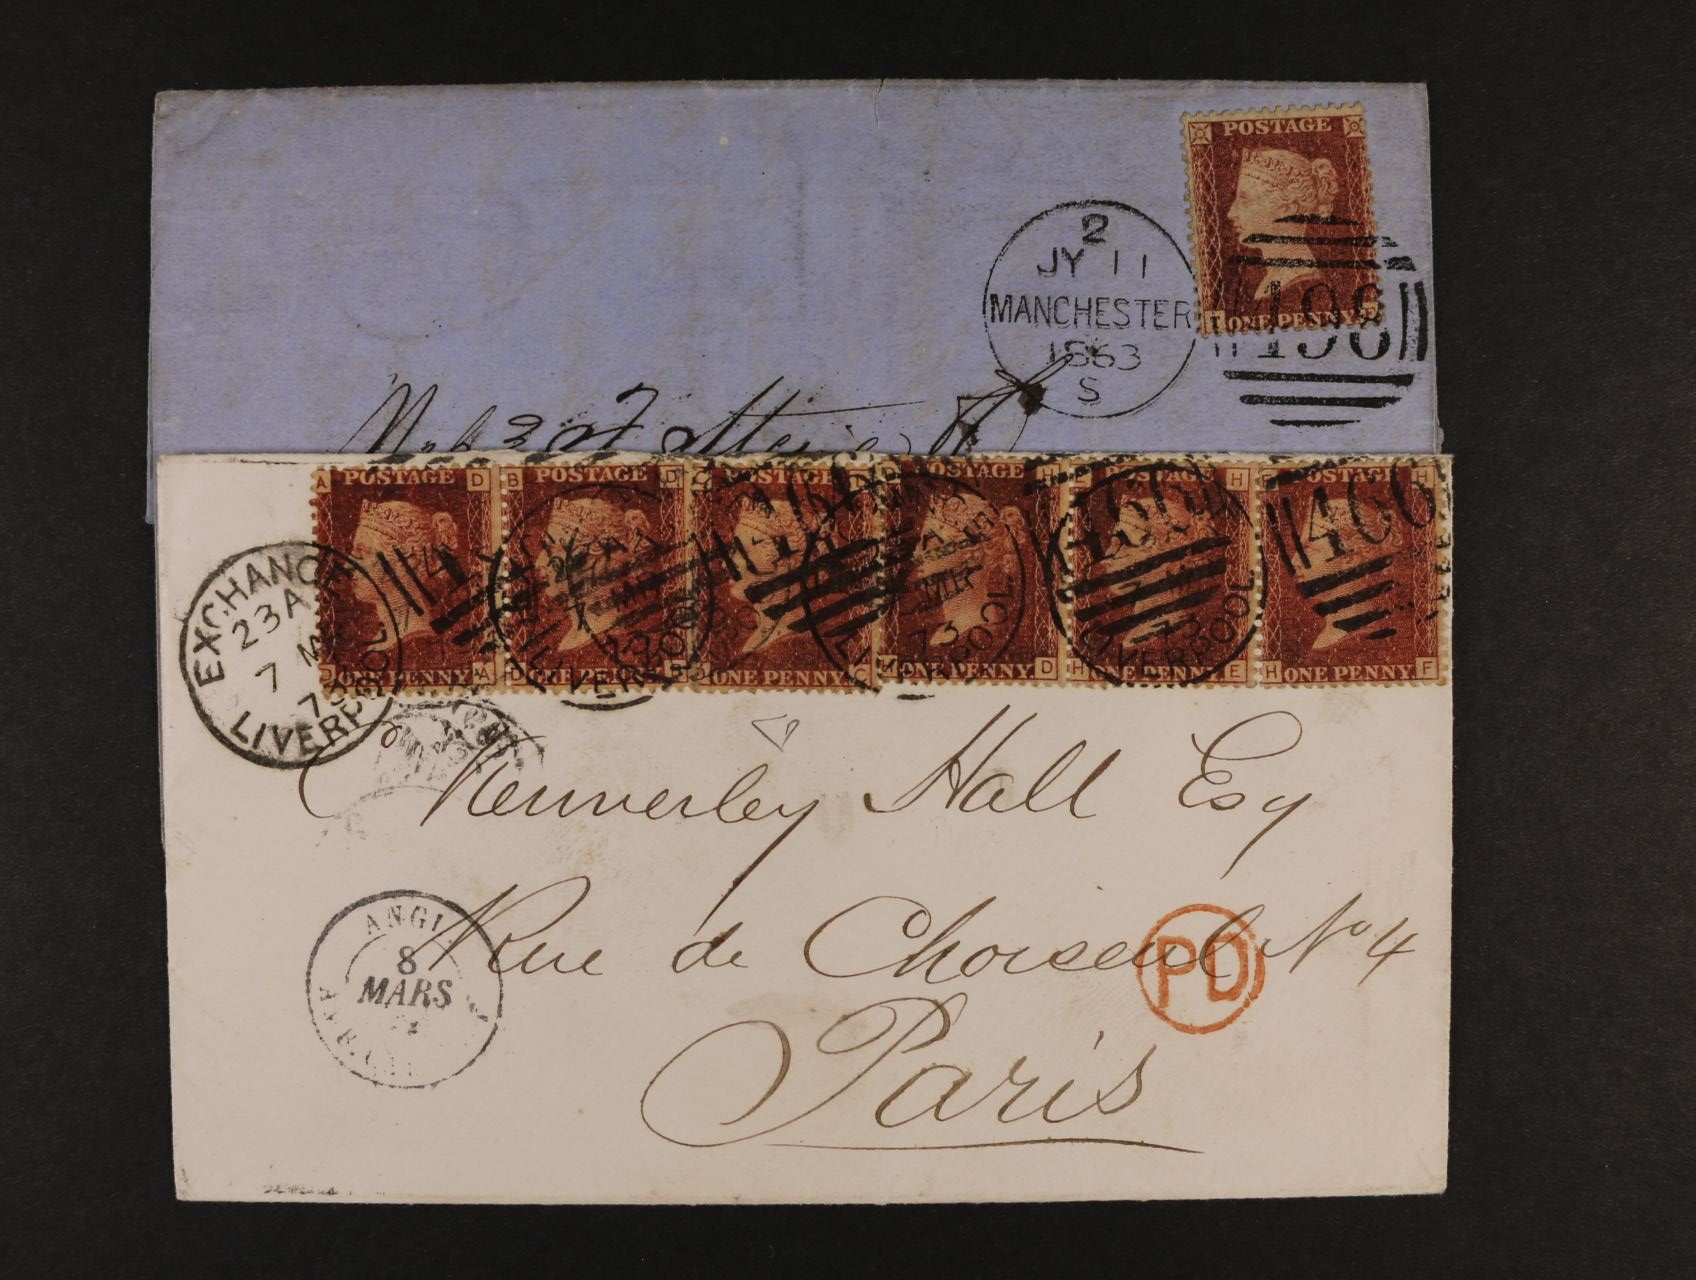 POSTAGE
2
JY 11
MANCHESTER
1863
S
498
T ONE PENNY
A POSTAGE D
B POSTAGE D
POSTAGE
POSTAGE H
E POSTAGE H
POSTAGE H
4
466
466
466
EXCHANGE
23A
7 M
73
LIVERPOOL
7 MR
73
LIVERPOOL
MR
73
LIVERPOOL
73
LIVERPOOL
D ONE PENNY A
D ONE PENNY
ONE PENNY C
H ONE PENNY D
H ONE PENNY E
H ONE PENNY F
Kennerley Hall Esq
Rue de Choiseul No 4
Paris
ANGL
8
MARS
PD